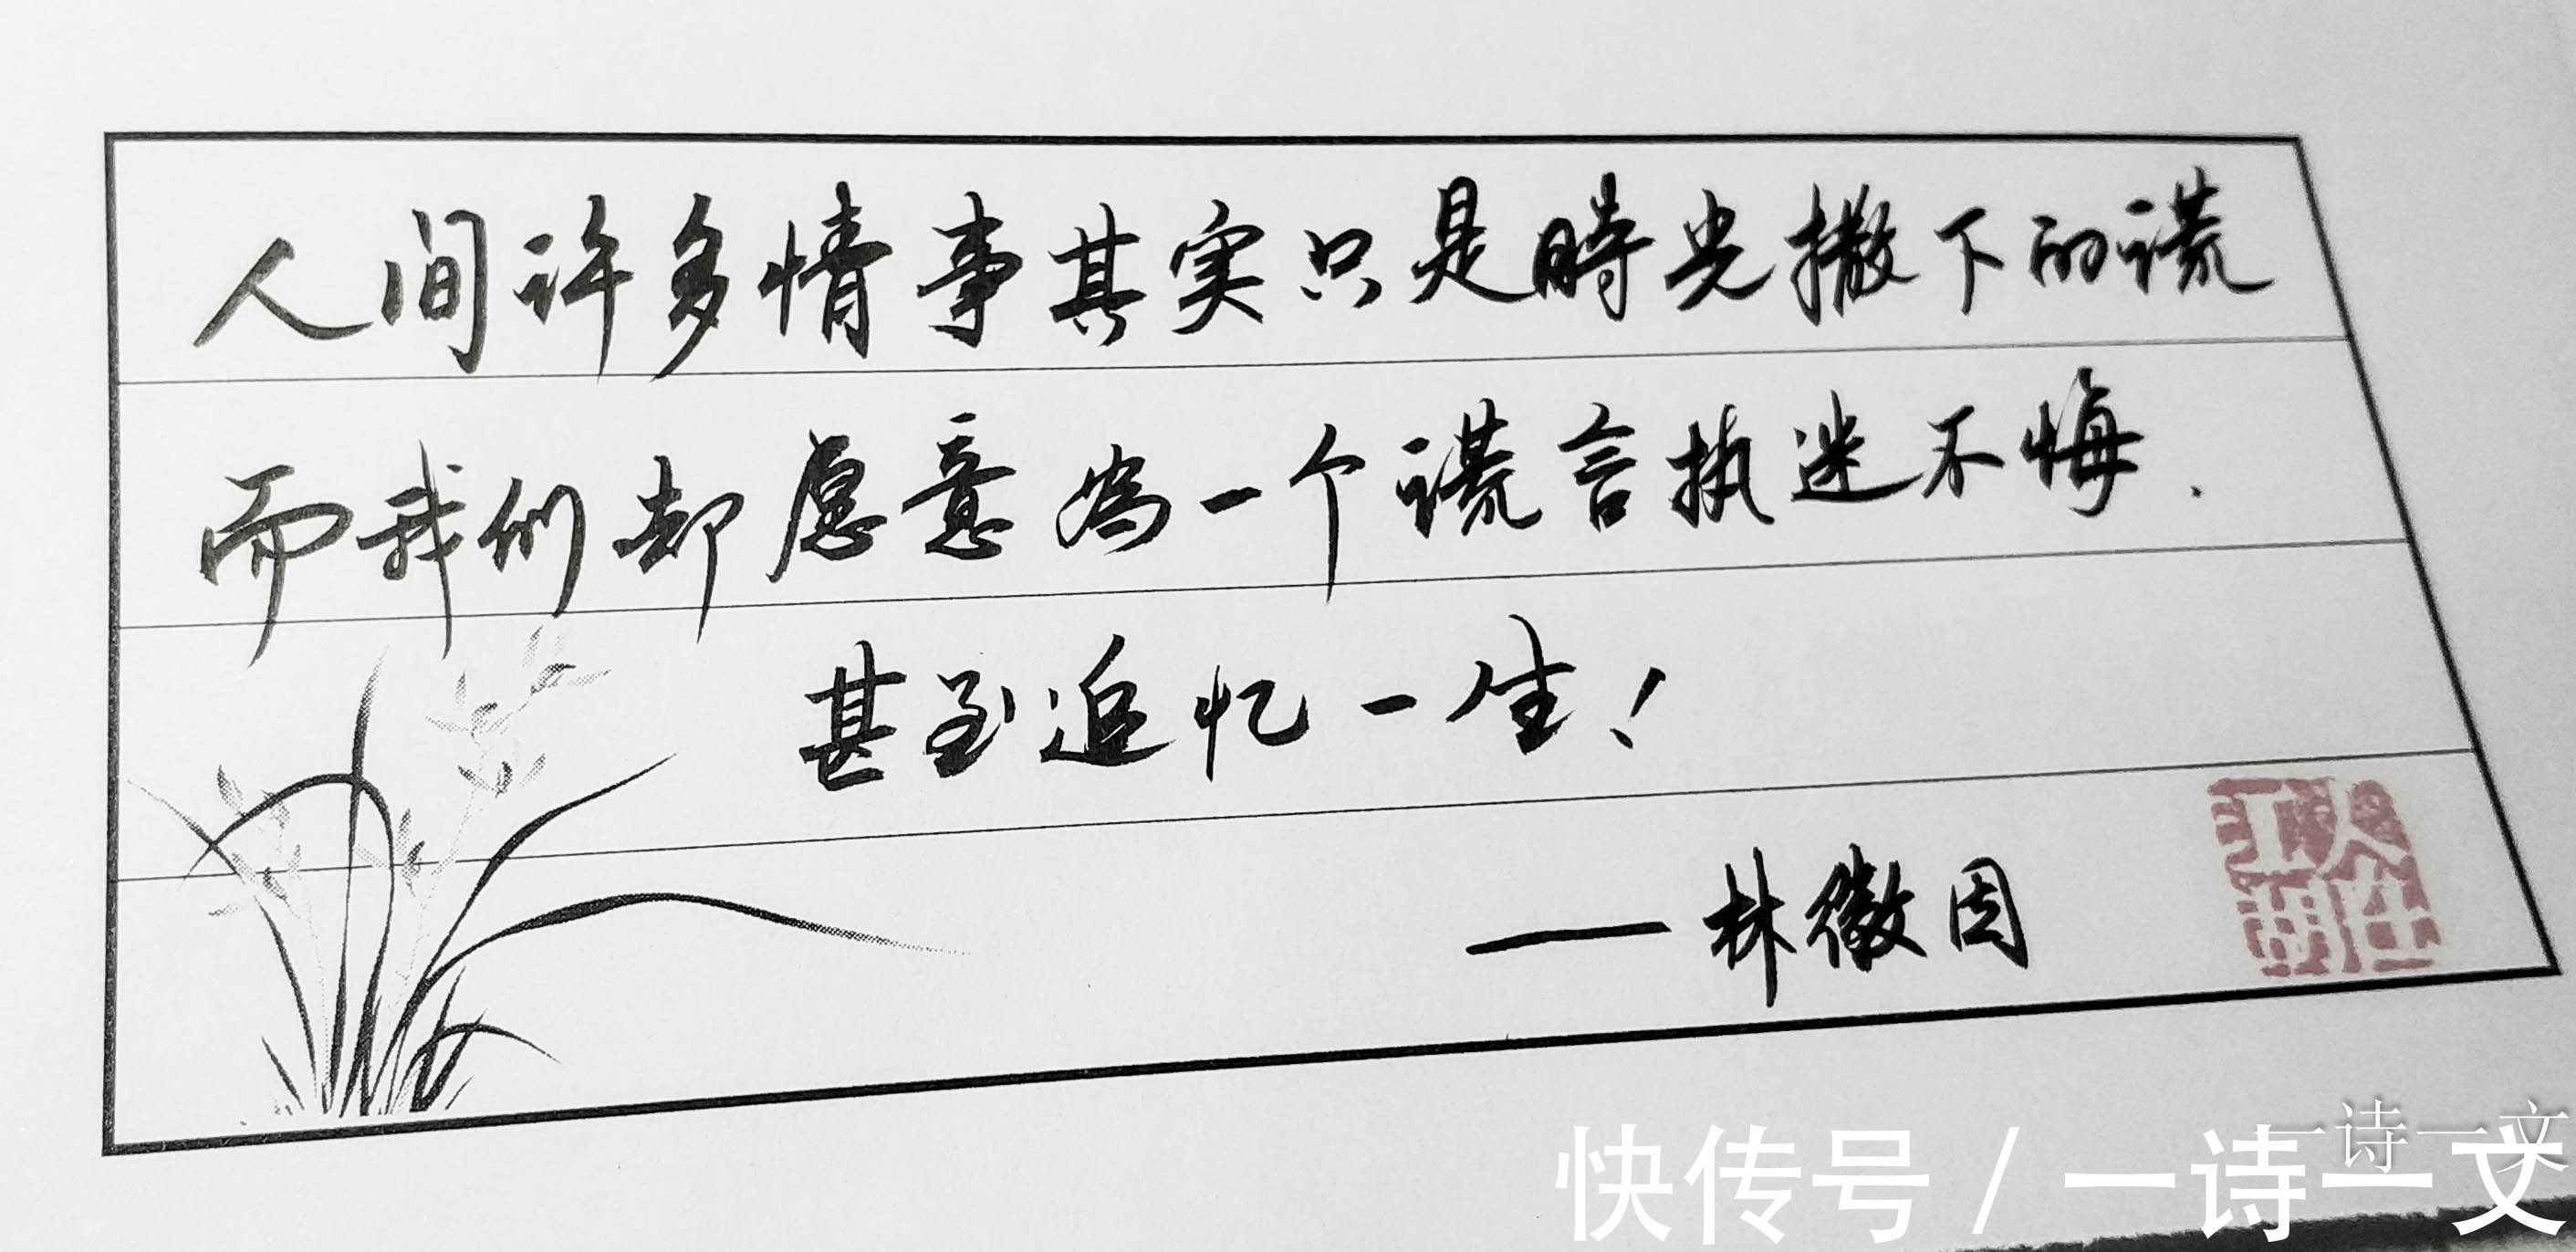 人间许多情事其实只是時光撒下的谎
而我们却愿意為一个谎言执迷不悔.
甚至追忆一生!
——林徽因
一诗一文
快传号/一诗一文